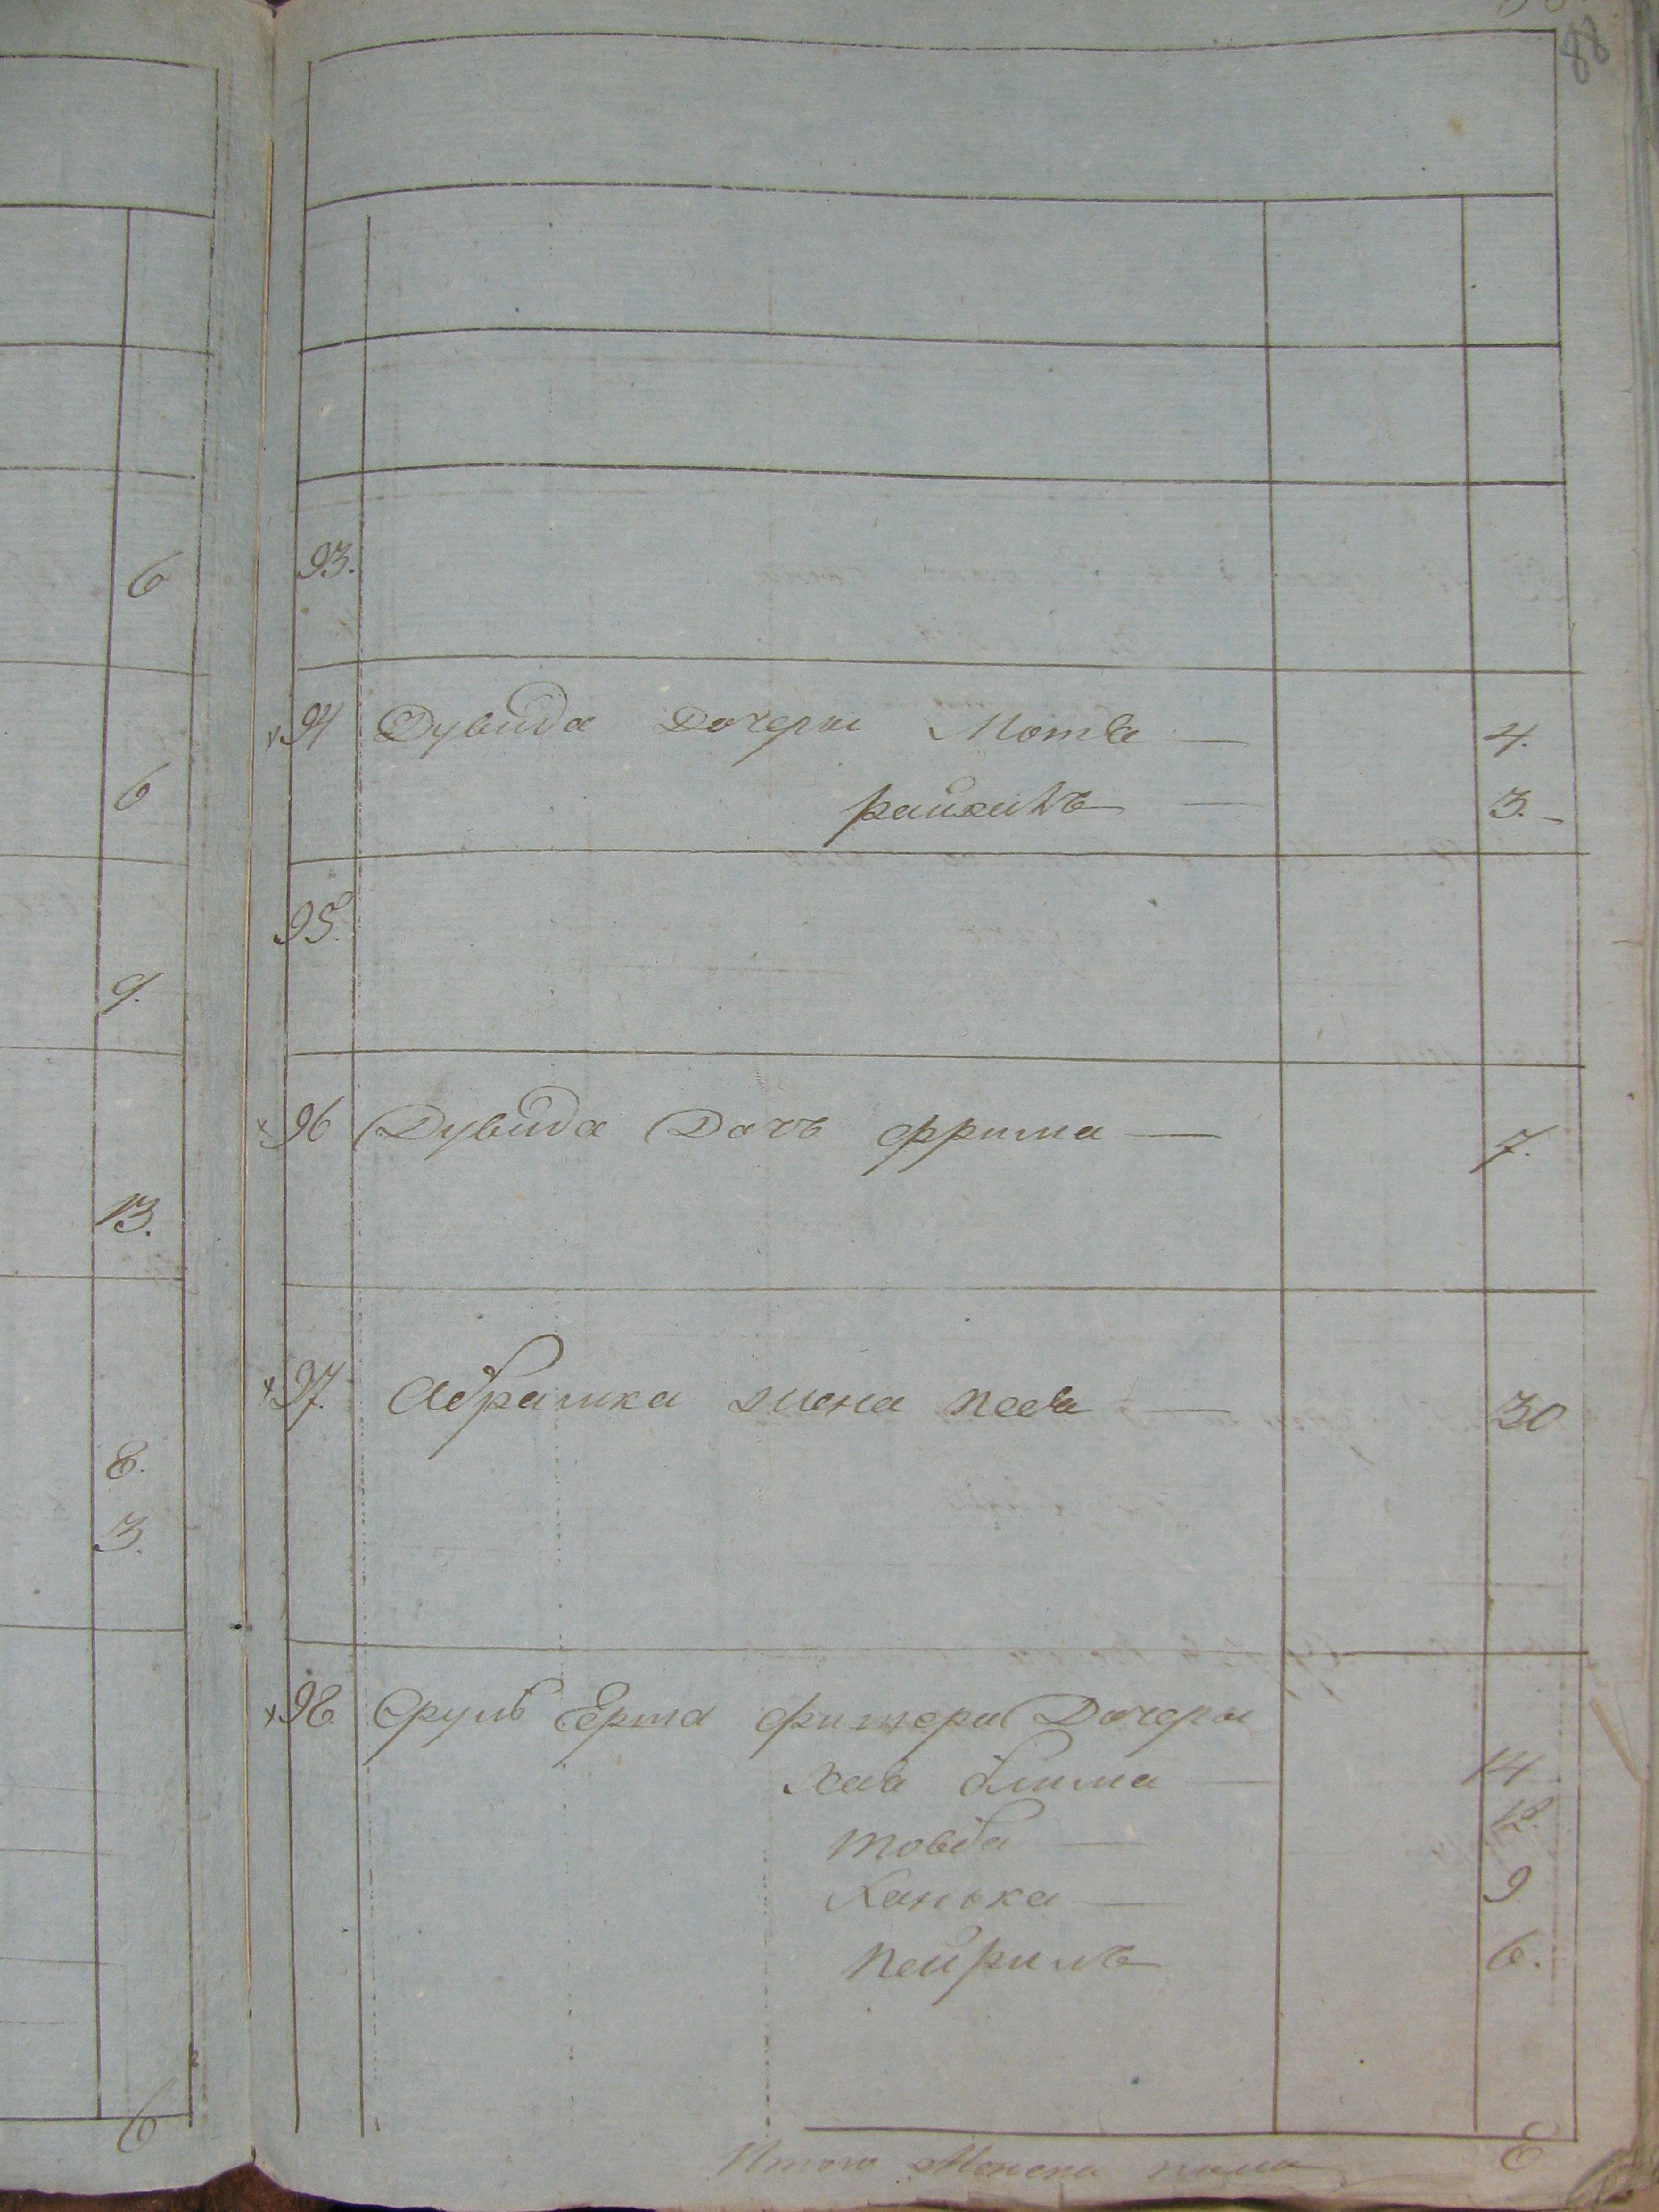 88
6
6
9.
13.
8.
3.
6
93.
94 Дувида Дочери Мотля — 4.
райхиль — 3.
95.
96 Дувида Дочь фрима — 7.
97. Абрамка жена песя — 30
98. Сруль Ерша Дочери
Хая блима — 14
товба — 12.
Ханька — 9
пейриль 6.
Итого женска пола 8